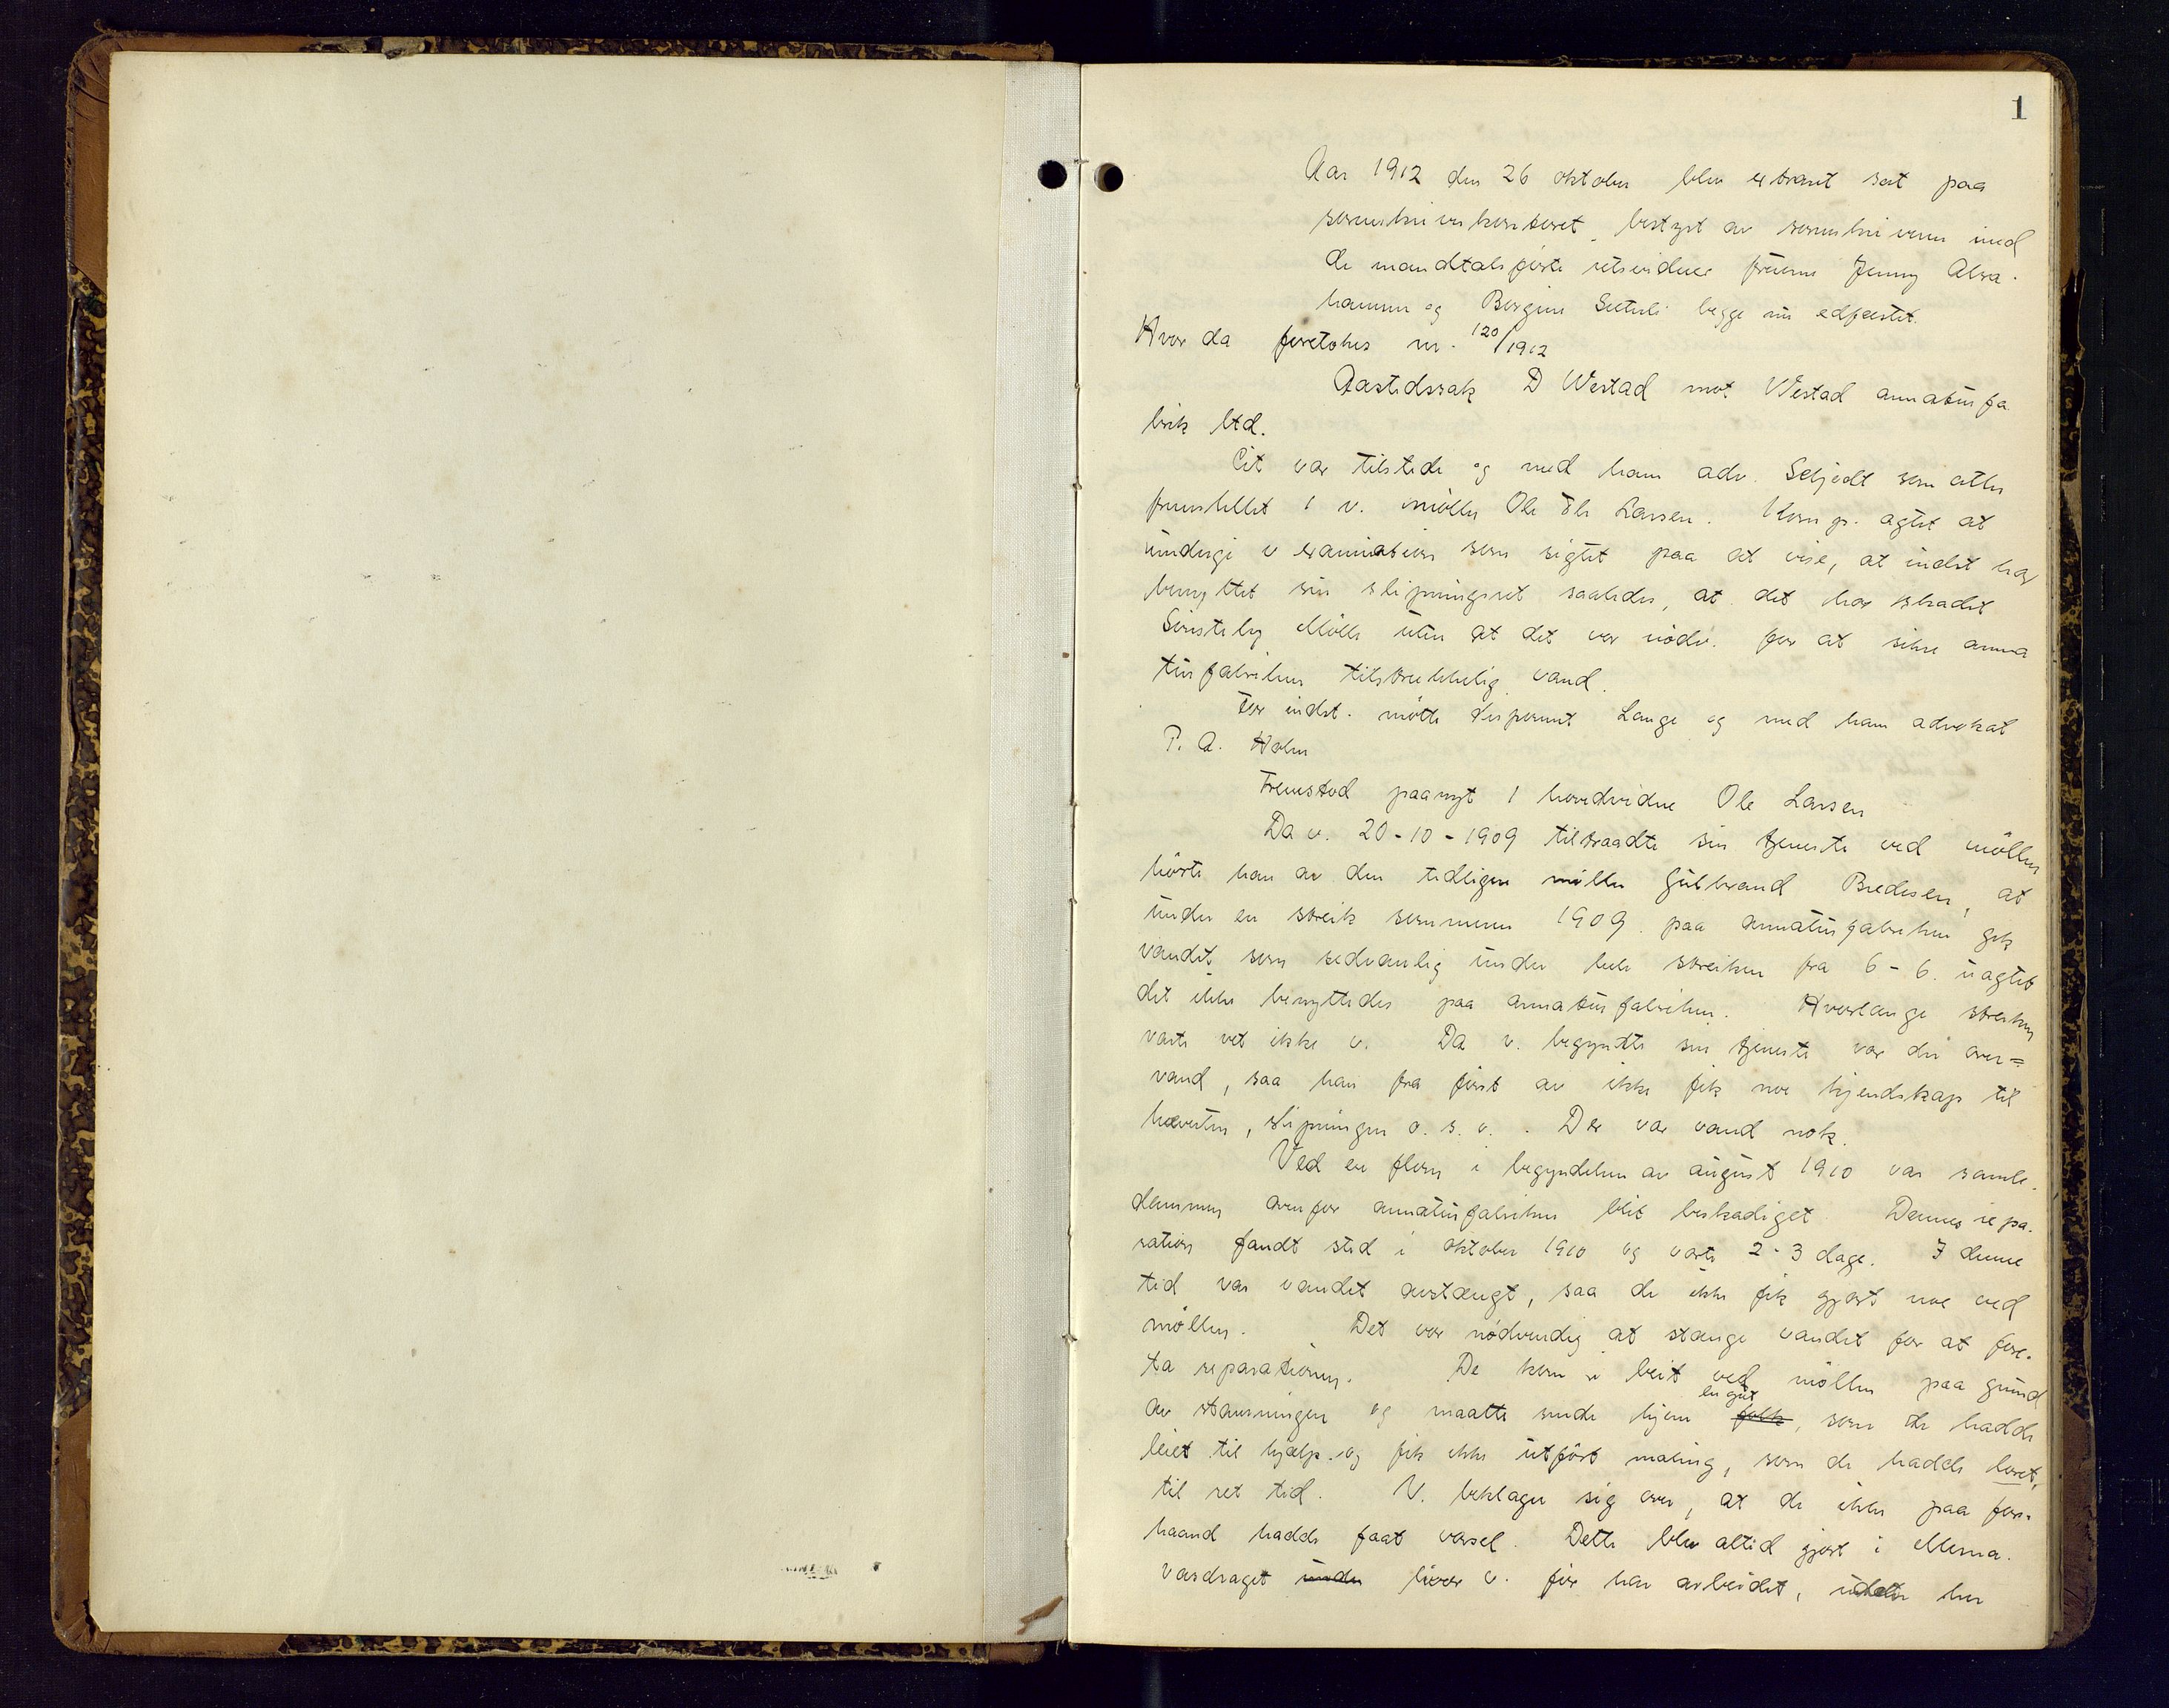 1
Aar 1912 den 26 oktober blev extraret sat paa
sorenskriverkontoret bestyrt av sorenskriveren med
de mandtalsførte retsvidner fruerne Jenny Abra-
hamsen og Bergine Sæterli begge nu edfæstet.
Hvor da foretokes nr. 120/1912
Aastedssak D Westad mot Westad armaturfa-
brik ltd.
Cit var tilstede og med ham adv. Schjødt som atter
fremstillet 1 v. møller Ole Larsen. Komp. agtet at
undergi v examination som sigtet paa at vise, at indst har
benyttet sin slipningsret saaledes, at det har skadet
Mølle uten at det var nødv. for at sikre arma
turfabriken tilstrækkelig vand.
For indst. møtte disponent Lange og med ham advokat
P. A. Holm
Fremstod paanyt 1 hovedvidne Ole Larsen
Da v. 20-10-1909 tiltraadte sin tjeneste ved møllen
hørte han av den tidligere møller Gulbrand Bredesen, at
under en streik sommeren 1909 paa armaturfabriken gik
vandet som sedvanlig under hele streiken fra 6-6. uagtet
det ikke benyttedes paa armaturfabriken. Hvorlænge streiken
varte vet ikke v. Da v. begyndte sin tjeneste var der over=
vand, saa han fra først av ikke fik noe kjendskap til
hæverten, slipningen o. s. v. . Der var vand nok.
Ved en flom i begyndelsen av august 1910 var samle-
dammen ovenfor armaturfabriken blit beskadiget Dennes repa-
ration fandt sted i oktober 1910 og varte 2-3 dage. I denne
tid var vandet avstængt, saa de ikke fik gjort noe ved
møllen. Det var nødvendig at stænge vandet for at fore-
ta reparationen. De kom i beit ved møllen paa grund
av stansningen og maatte sende hjem folk en gut, som de hadde
leiet til hjælp og fik ikke utført maling, som de hadde lovet,
til ret tid. V. beklager sig over, at de ikke paa for-
haand hadde faat varsel. Dette blev altid gjort i Mesna-
vasdraget under hvor v. før har arbeidet, her